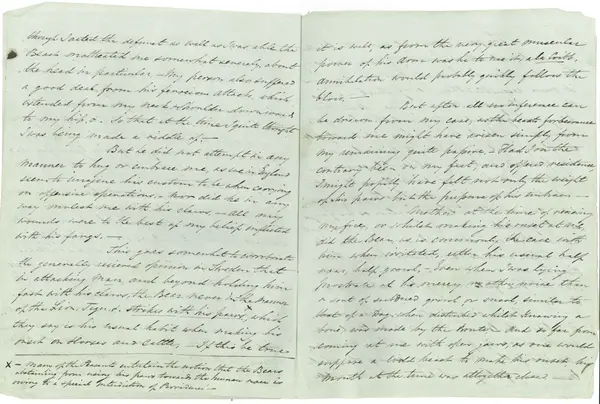 though I acted the defunct as well as I was able the
Beast maltreated me somewhat severely about
the head in particular — My person also suffered
a good deal from his ferocious attack, which
extended from my neck & shoulder downward
to my hip, . So that at the time I quite thought
I was being made a riddle of. —
But he did not attempt in any
manner to hug or embrace me, as we in England
seem to imagine his custom to be when carrying
on offensive operations. Nor did he in any
way molest me with his claws — All my
wounds were to the best of my belief inflicted
with his fangs. —
This goes somewhat to corroborate
the generally received opinion in Sweden that
in attacking Man, and beyond holding him
fast with his claws, the Bear never in the manner
of the Lion, Tiger, Strikes with his paws, which
they say is his usual habit when making his
onset on Horses and Cattle, — If this be true
X — Many of the Peasants entertain the notion that the Bears
abstaining from using his paws towards the human race is
owing to a special Interdiction of Providence —
it is well, as from the very great muscular
power of his Arm — was he to
annihilation would probably quickly follow the
blow. —
But after all no inference can
be drawn from my case, as the beast's forbearance
towards me might have arisen simply from
my remaining quite passive. Had I on the
contrary been on my feet, and offered resistance
I might possibly have felt not only the weight
of his paws but the pressure of his embrace —
Neither at the time of receiving
my fire, or whilst making his onset at
did the Bear, as is commonly the case with
him when , utter his usual half
roar, half growl. — Even when I was lying
prostrate at his mercy no other noise than
a sort of subdued growl or snarl, similar to
that of a Dog, when disturbed whilst gnawing a
bone was made by the Brute. And so far from
coming at me with open jaws, as one would
suppose a wild beast to make his onset his
Mouth at the time was altogether closed —